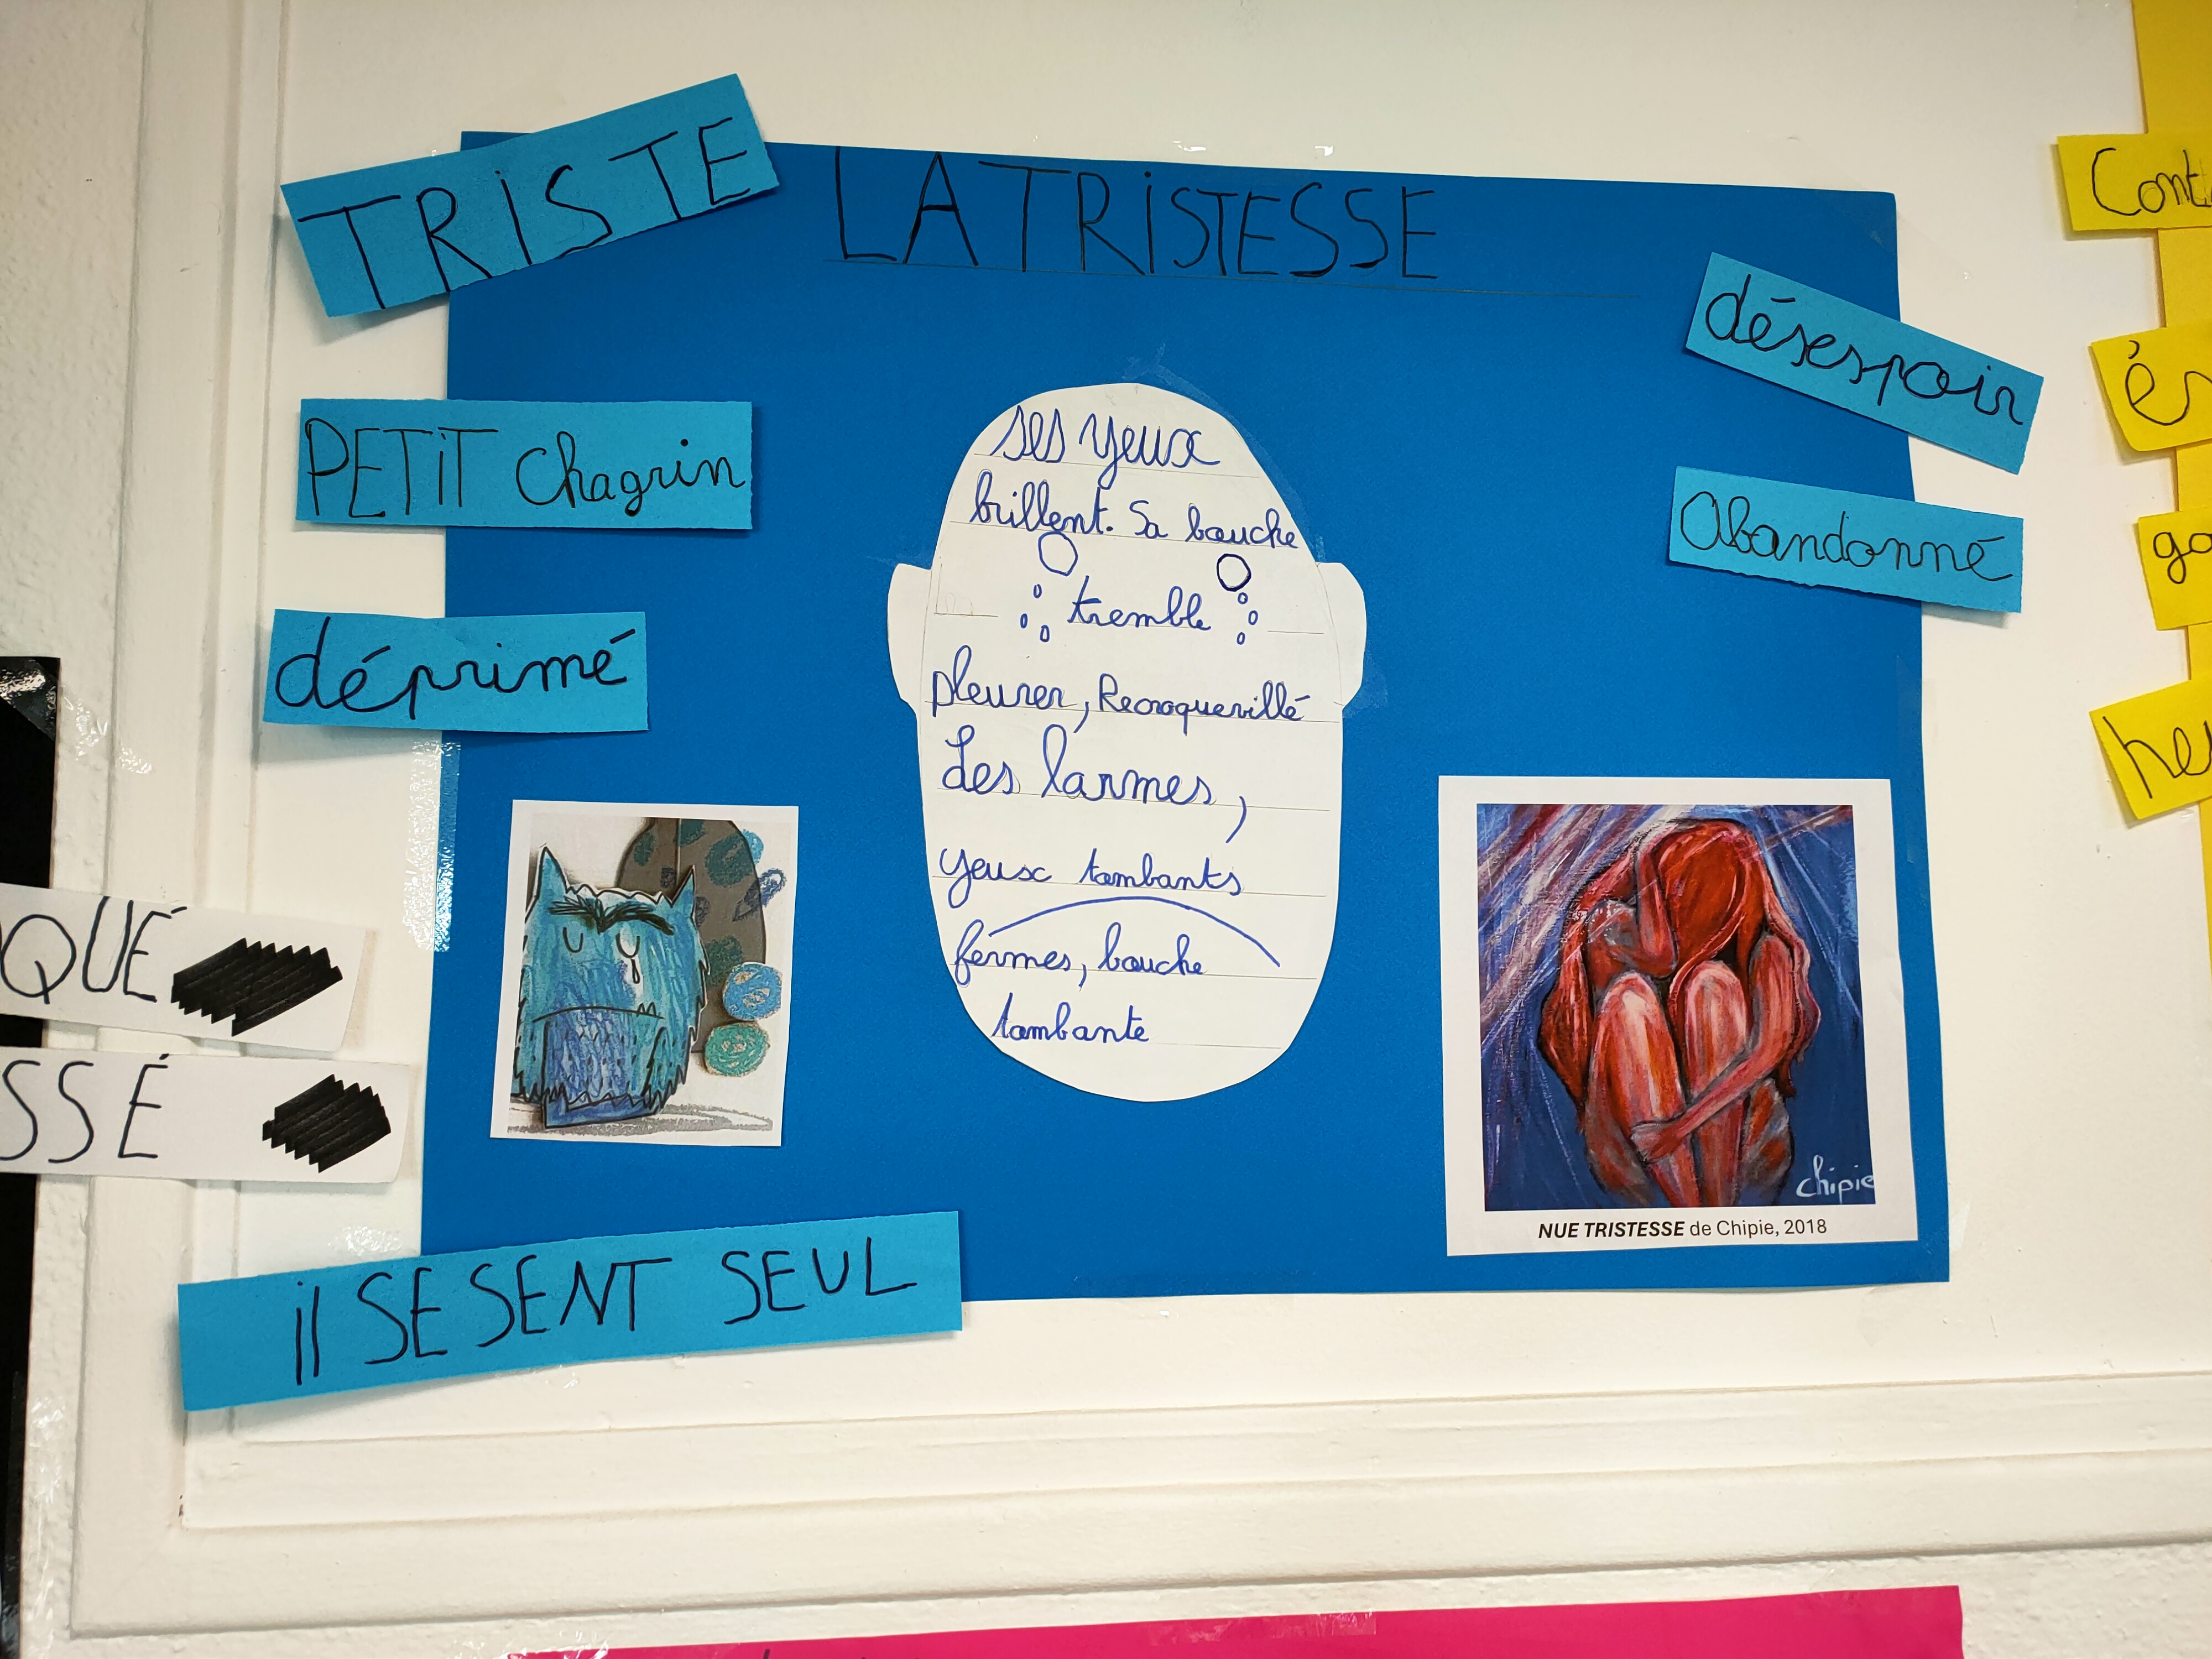 TRISTE
LA TRISTESSE
désespoir
PETIT chagrin
Abandonné
déprimé
ses yeux
brillent. Sa bouche
tremble
pleurer, Recroquevillé
Les larmes,
yeux tombants
fermes, bouche
tombante
QUÉ
SSÉ
chipie
NUE TRISTESSE de Chipie, 2018
il SE SENT SEUL
Cont
go